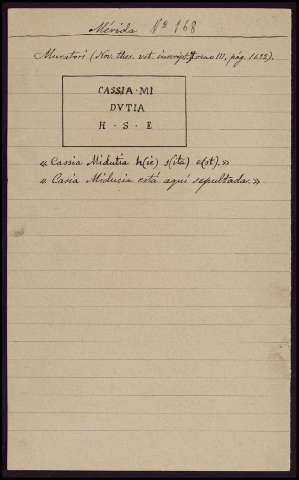 Mérida Nº 168
Muratori (Nov. thes. vet. inscript. tomo III, pág. 1622).
CASSIA · MI
DVTIA
H · S · E
« Cassia Midutia h(ic) s(ita) e(st). »
« Casia Miducia está aquí sepultada. »